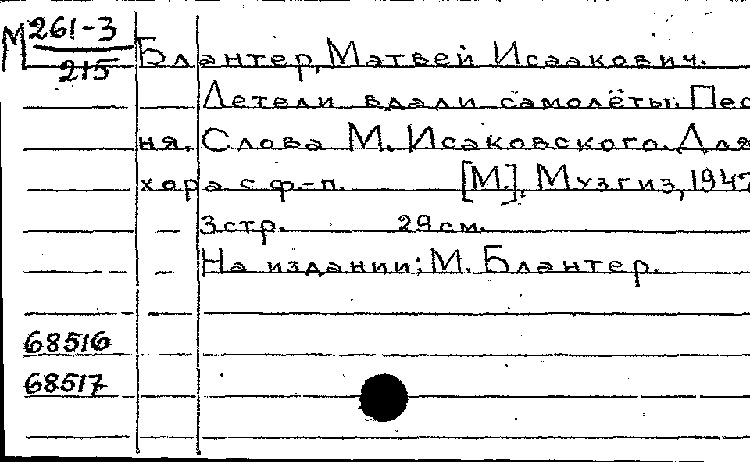 М 261-3
215
Блантер, Матвей Исаакович.
Летели вдали самолёты. Пес
ня. Слова М. Исаковского. Для
хора с ф.-п. [М.], Музгиз, 1947
3 стр. 29 см.
На издании: М. Блантер.
68516
68517